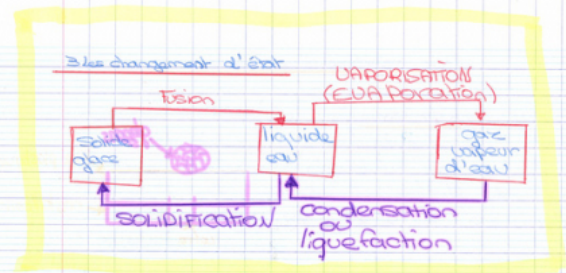 3 les changement d'état
VAPORISATION
(EVAPORATION)
Fusion
Solide
glace
liquide
eau
gaz
vapeur
d'eau
SOLIDIFICATION
condensation
ou
liquefaction